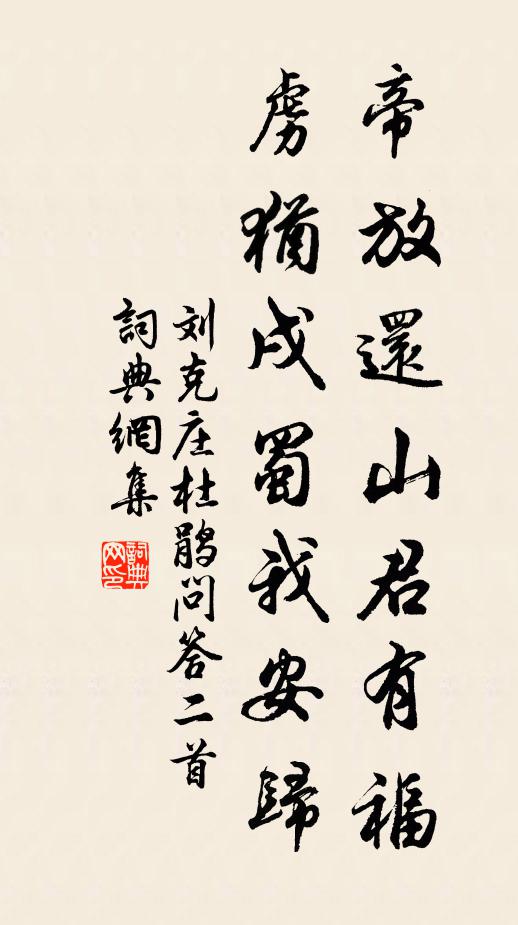 帝放還山君有福
虏猶戍蜀我安歸
刘克庄杜鹃问答二首
詞典網集
詞典网印